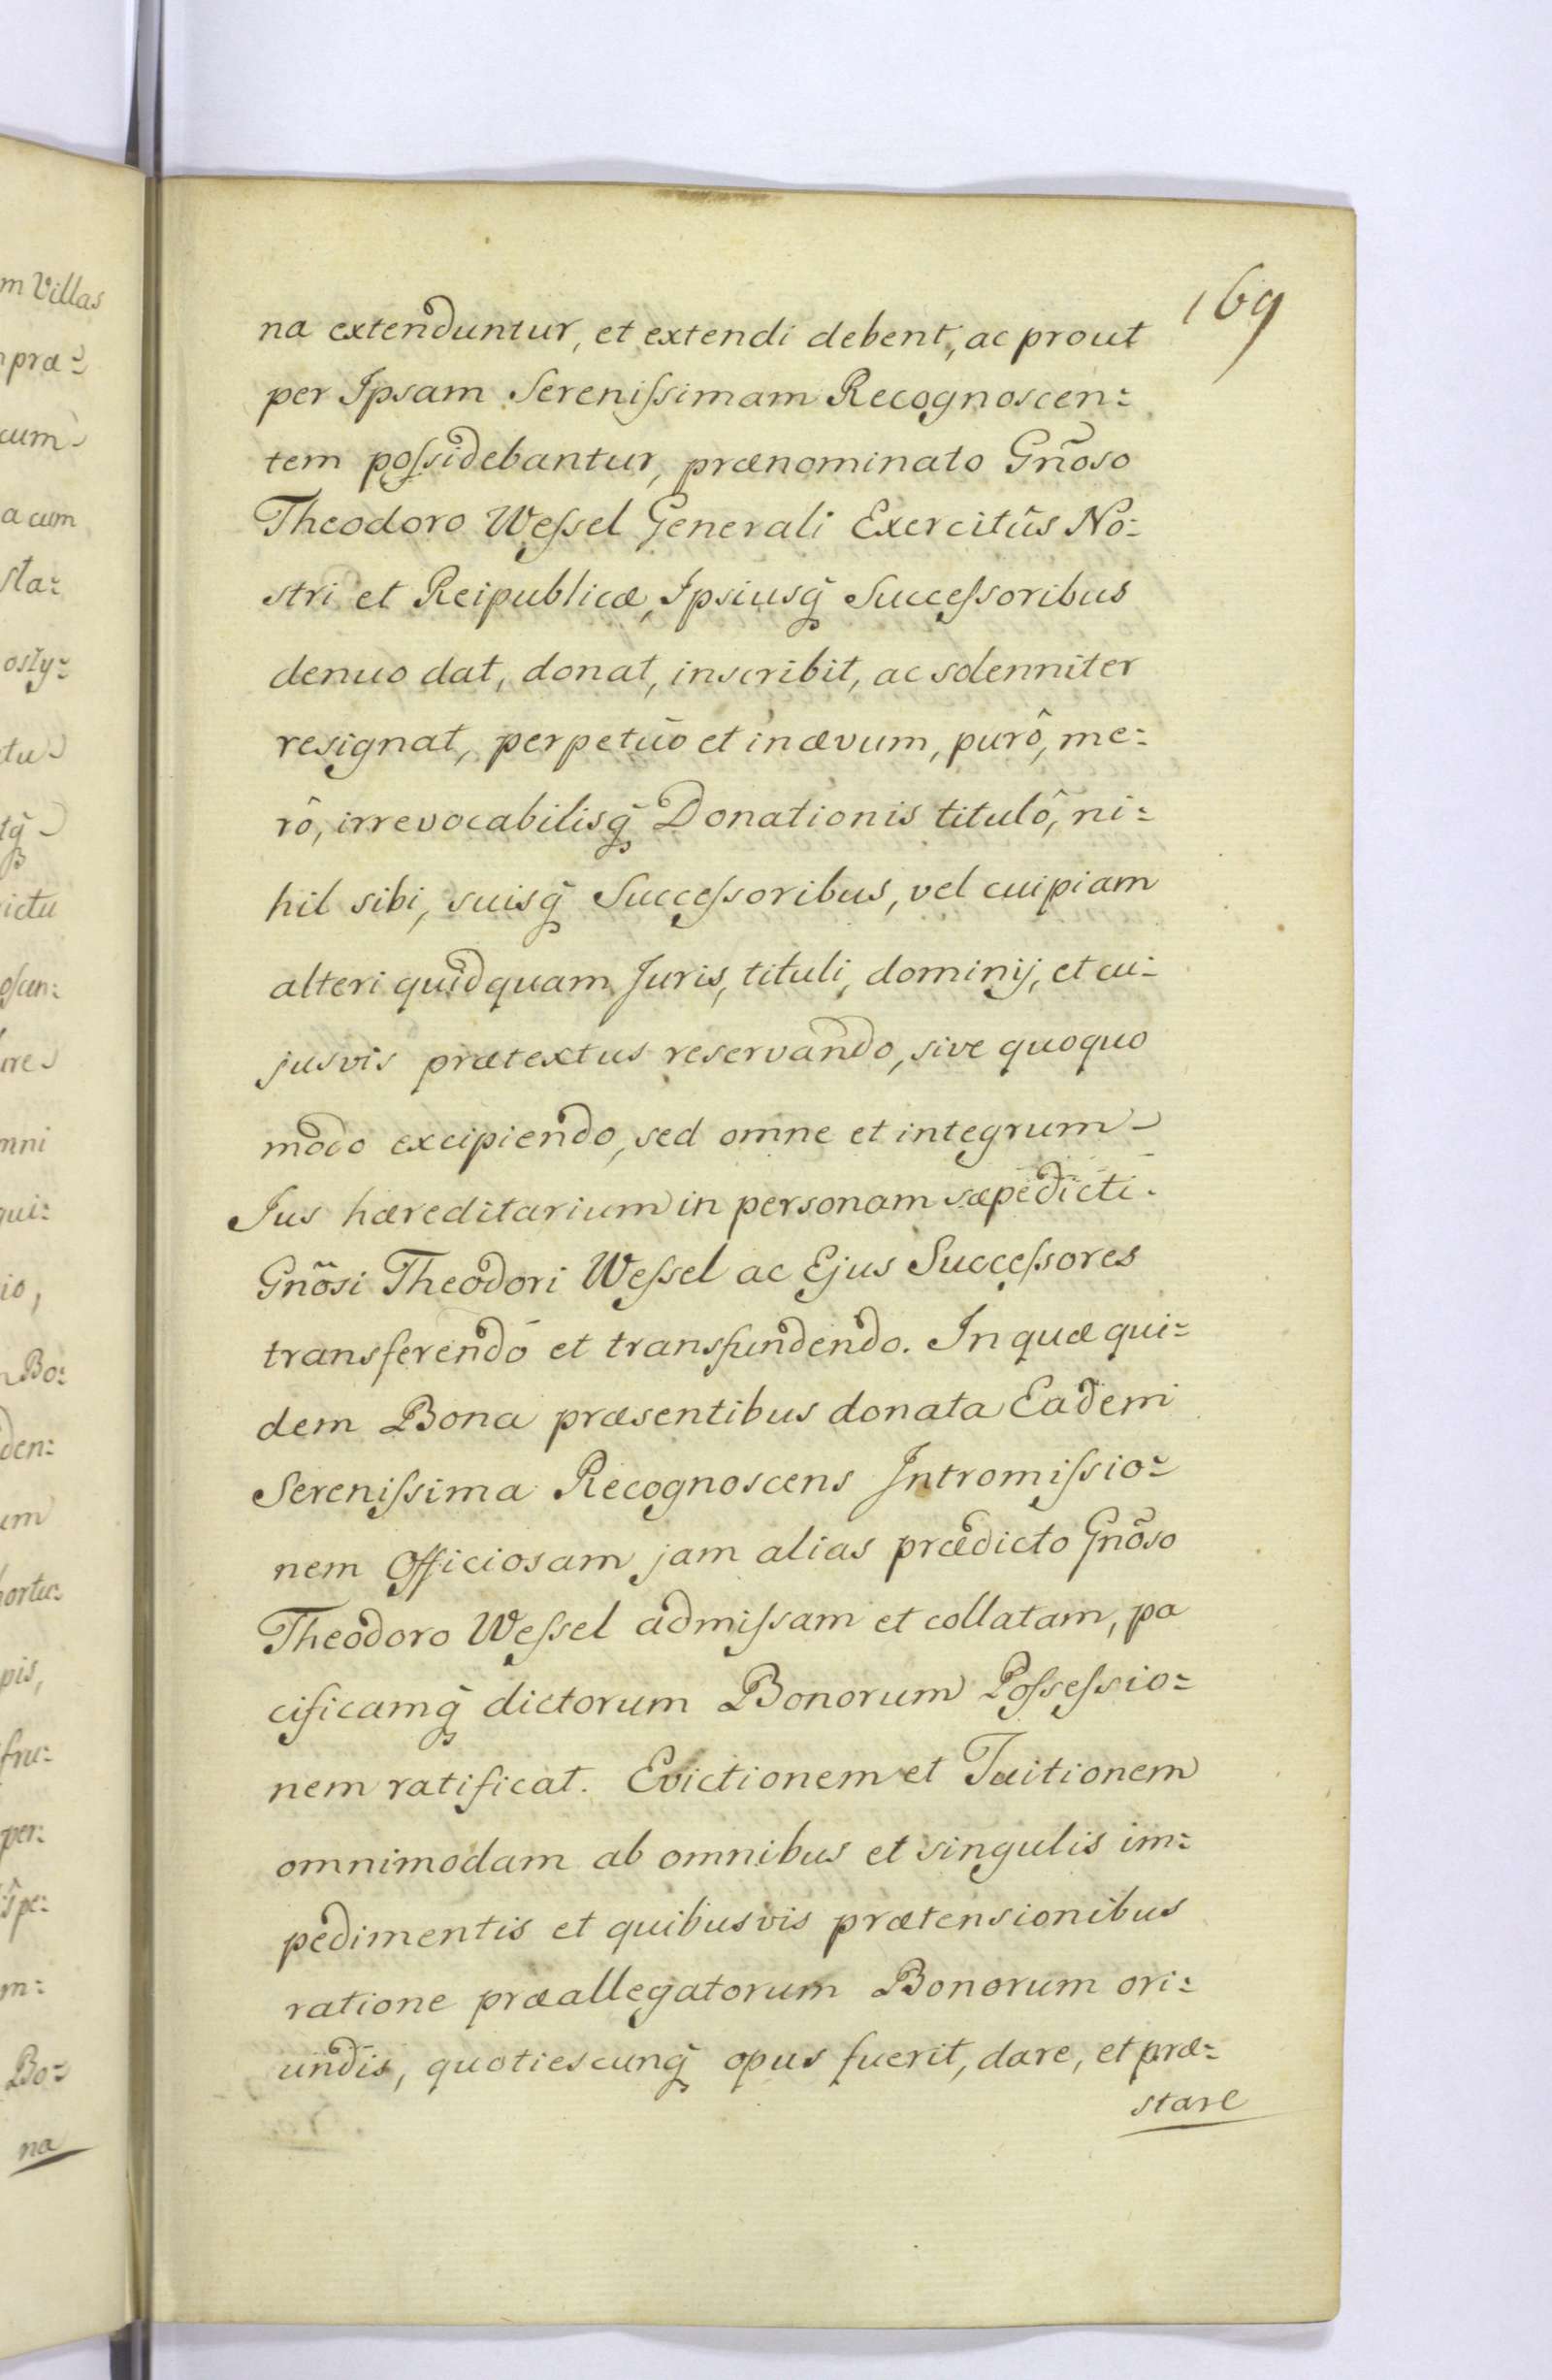 169
na extenduntur, et extendi debent, ac prout
per Ipsam Serenißimam Recognoscen=
tem poßidebantur, prænominato Gñoso
Theodoro Weßel Generali Exercitûs No=
stri et Reipublicæ, Ipsiusq̃ Succeßoribus
denuo dat, donat, inscribit, ac solenniter
resignat, perpetuo et in ævum, purô, me=
rô, irrevocabilisq̃ Donationis titulô, ni=
hil sibi, suisq̃ Succeßoribus, vel cuipiam
alteri quidquam Juris, tituli, dominij, et cu=
jusvis prætextus reservando, sive quoquo
modo excipiendo, sed omne et integrum
Jus hæreditarium in personam sæpedicti
Gñosi Theodori Weßel ac Ejus Succeßores
transferendo et transfundendo. In quæ qui=
dem Bona præsentibus donata Eadem
Serenißima Recognoscens Intromißio=
nem Officiosam jam alias prædicto Gñoso
Theodoro Weßel admißam et collatam, pa
cificamq̃ dictorum Bonorum Poßeßio=
nem ratificat. Evictionem et Tuitionem
omnimodam ab omnibus et singulis im=
pedimentis et quibusvis prætensionibus
ratione præallegatorum Bonorum ori=
undis, quotiescunq̃ opus fuerit, dare, et præ=
stare